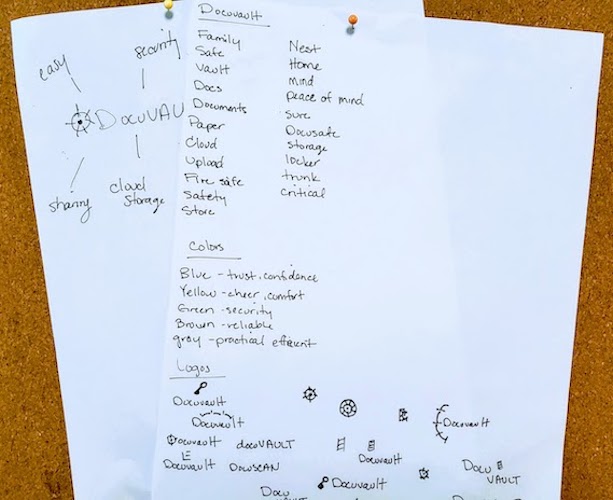 easy
security
DocuVAU
sharing
cloud
storage
Docuvault
Family
Safe
Vault
Docs
Documents
Paper
Cloud
Upload
Fire safe
Safety
Store
Nest
Home
mind
peace of mind
Sure
Docusafe
Storage
locker
trunk
critical
Colors
Blue - trust, confidence
Yellow - cheer, comfort
Green - security
Brown - reliable
gray - practical efficient
Logos
Docuvault
Docuvault
Docuvault
Docuvault
docuVAULT
Docuvault
Docuvault
DOCUSCAN
Docuvault
Docu
VAULT
Docu
VAULT